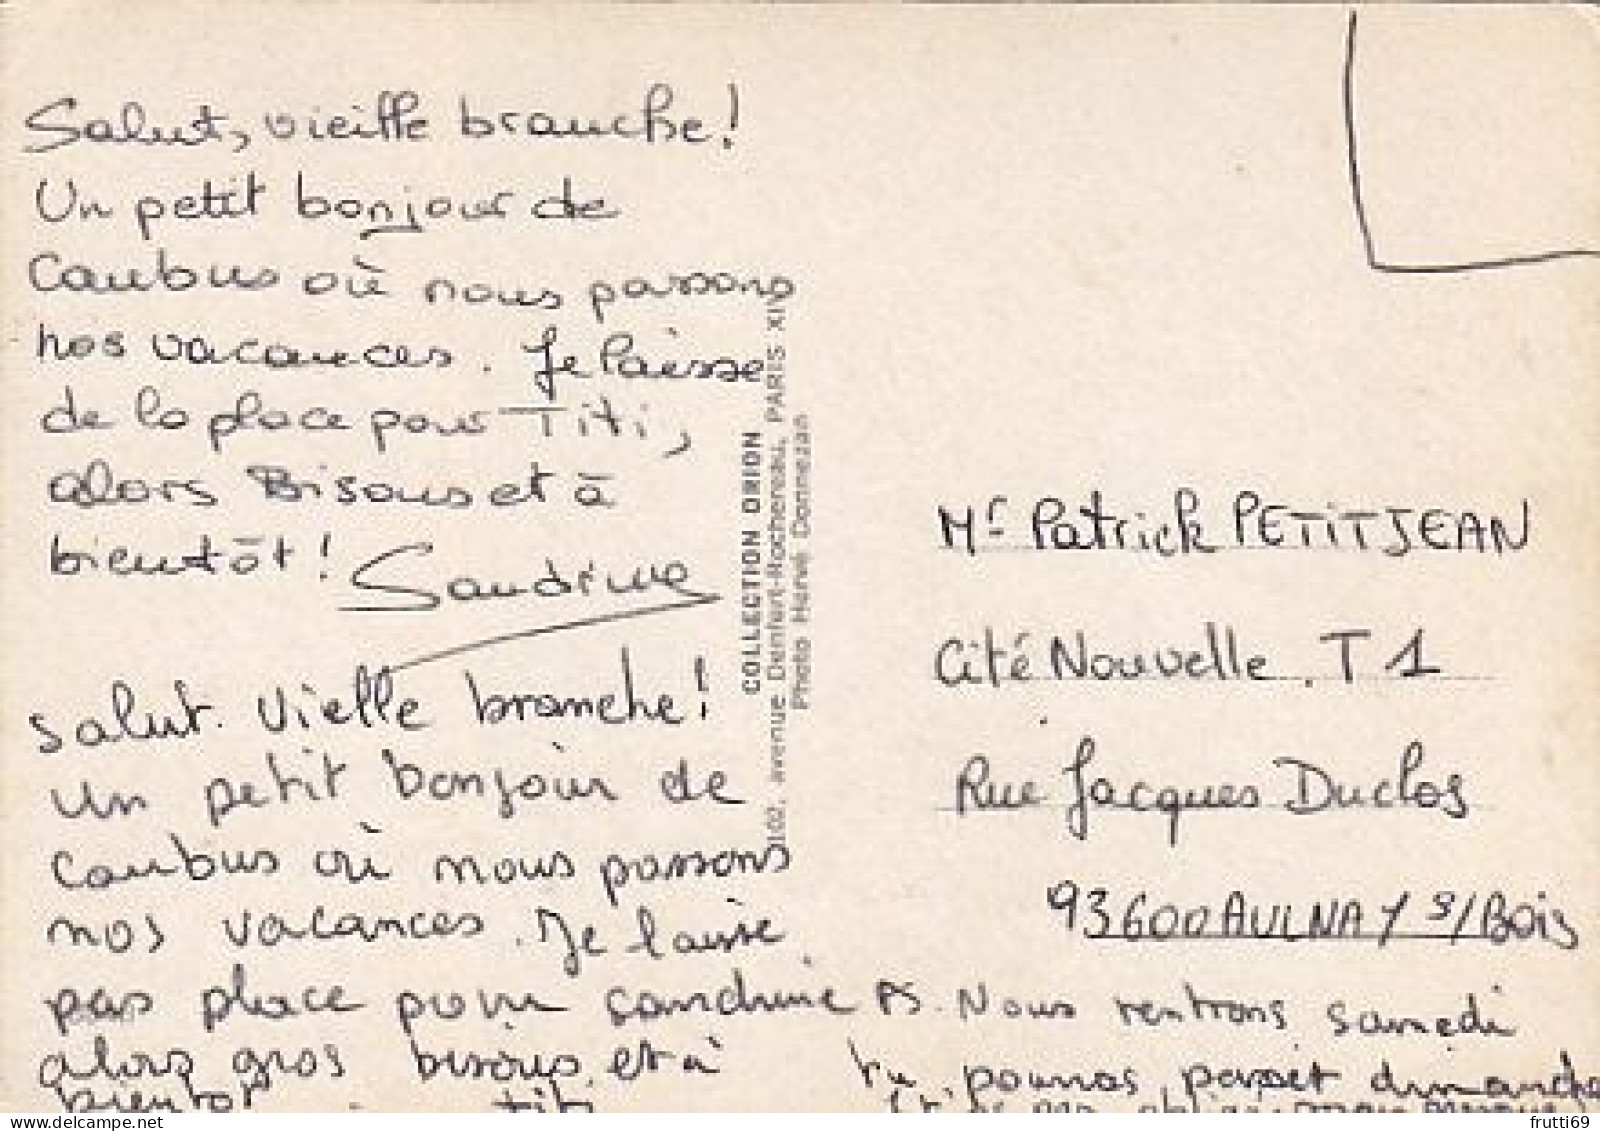 Salut, vieille branche!
Un petit bonjour de
Caubus où nous passons
nos vacances. Je laisse
de la place pour Titi,
alors Bisous et à
bientôt!
Sandrine
salut. vielle branche!
un petit bonjour de
Caubus où nous passons
nos vacances. Je laisse
pas place pour sandrine
alors gros bisous et à
bientot
titi
COLLECTION ORION
102, avenue Denfert-Rochereau, PARIS XIV
Photo Hervé Donnezan
Mr Patrick PETITJEAN
Cité Nouvelle. T 1
Rue Jacques Duclos
93600 AULNAY s/Bois
PS. Nous rentrons samedi
tu pourras passer dimanche
delcampe.net
frutti69